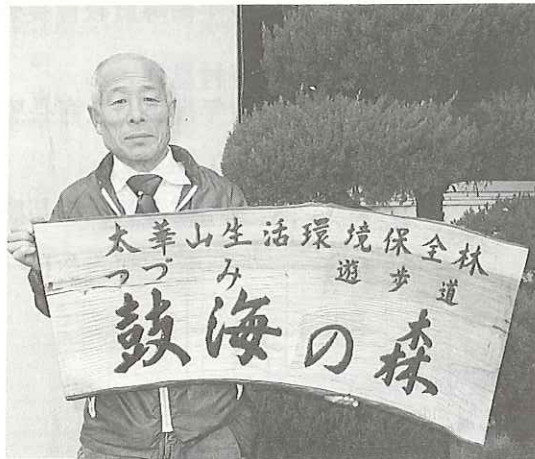 太華山生活環境保全林
つづみ 遊歩道
鼓海の森